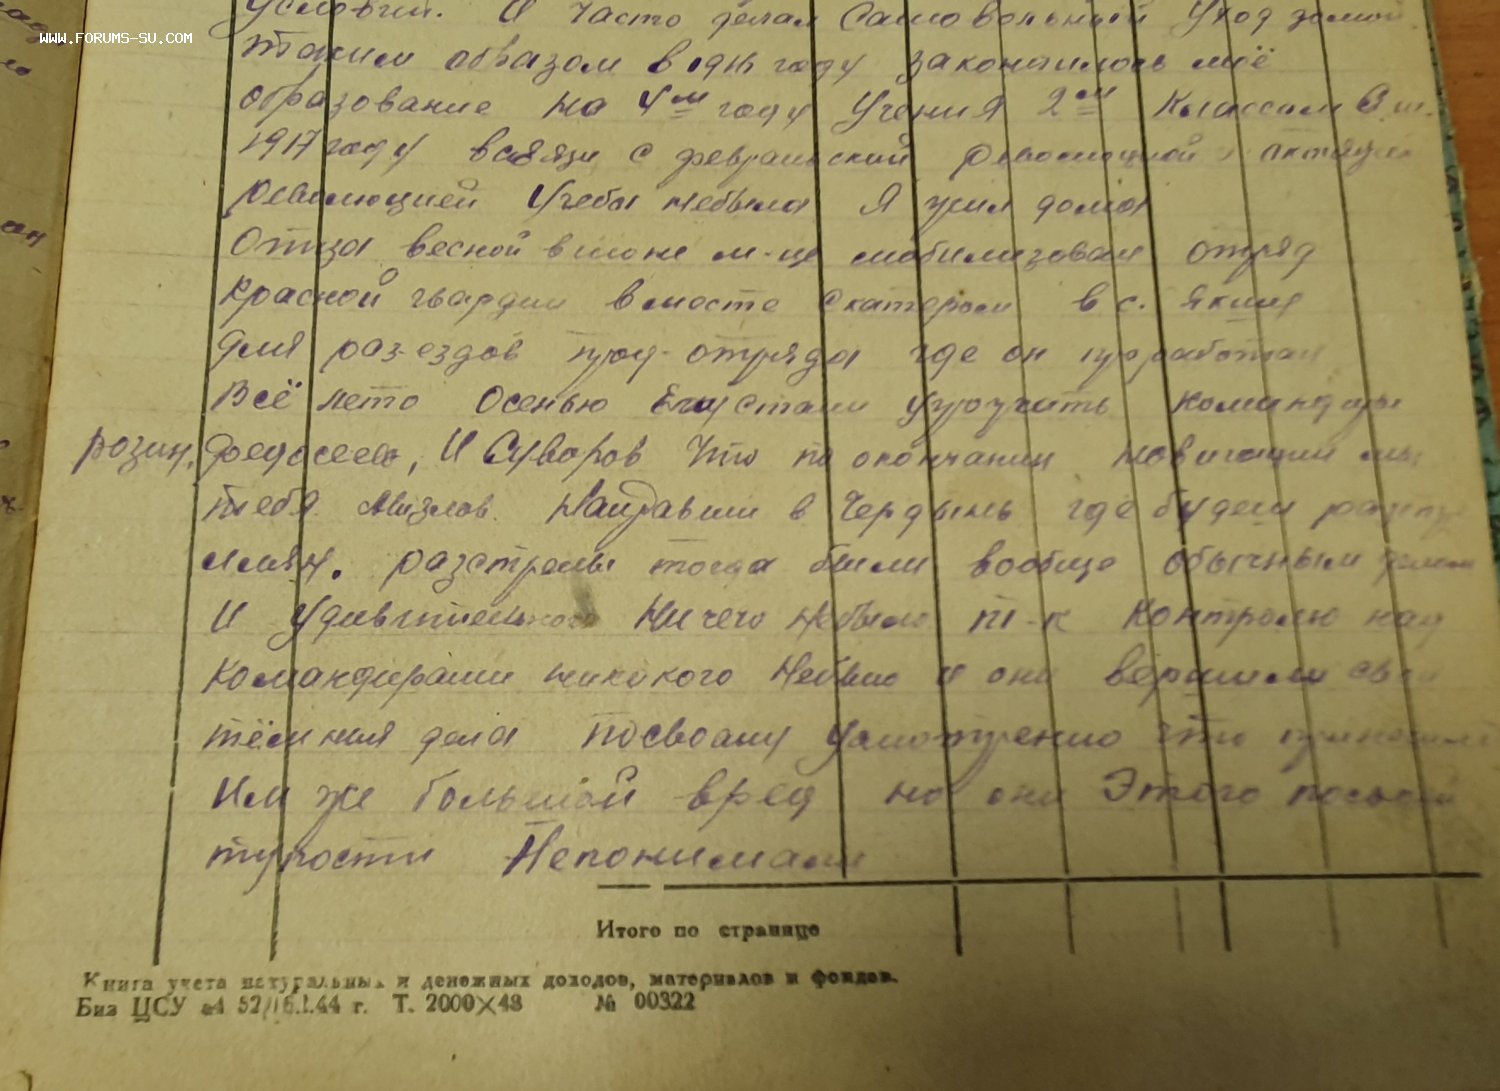 WWW.FORUMS-SU.COM
условий. И часто делал самовольный уход домой
таким образом в 1916 году закончилось моё
образование на 4м году учения 2м классом В.
1917 году всвязи с февральский революцией и октябр
революцией Учебы небыла Я жил дома
Отца весной в июне м-це мобилизовал отряд
Красной гвардии вместе с катером в с. Якша
для раз-ездов прод-отряда где он проработал
Всё лето Осенью Его стали упрочить командиры
розин, Федосеев, И Суворов Что по окончании навигации мы
тебя Мизлов. Направим в Чердынь где будем
расстрелы тогда были вообще обычным делом
И удивительного Ничего небыло т-к Контролю над
Командирами никокого Небыло и они вершили свои
тёмныя дела посвоему усмотрению что
Им же большой вред но они Этого посвоей
тупости Непонимали
Итого по странице
Книга учета натуральных и денежных доходов, материалов и фондов.
Биз ЦСУ 52/16.I.44 г. Т. 2000×48 № 00322